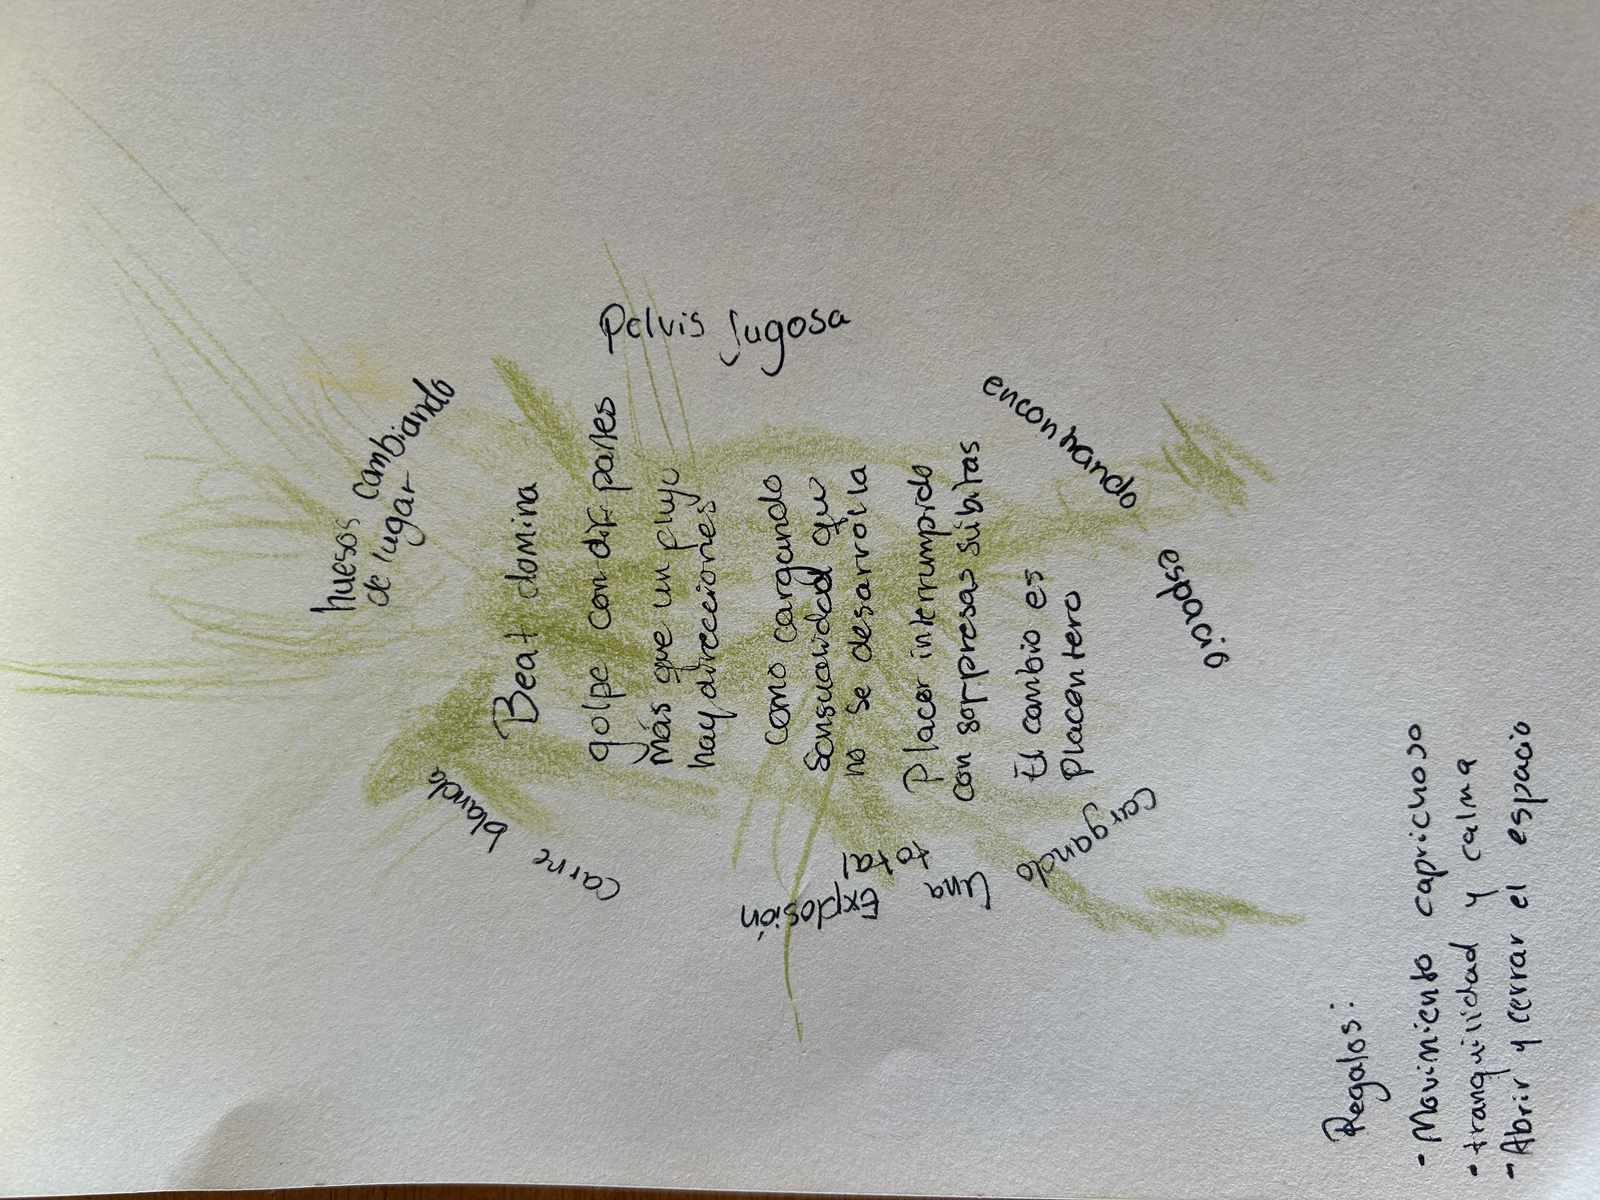 huesos cambiando
de lugar
Pelvis Jugosa
carne blanda
Beat domina
golpe con dif. partes
más que un flujo
hay direcciones
como cargando
Sensualidad que
no se desarrolla
Placer interrumpido
con sorpresas súbitas
El cambio es
placentero
encontrando
espacio
cargando
Una
total
Explosión
Regalos:
• Movimiento caprichoso
• tranquilidad y calma
- Abrir y cerrar el espacio